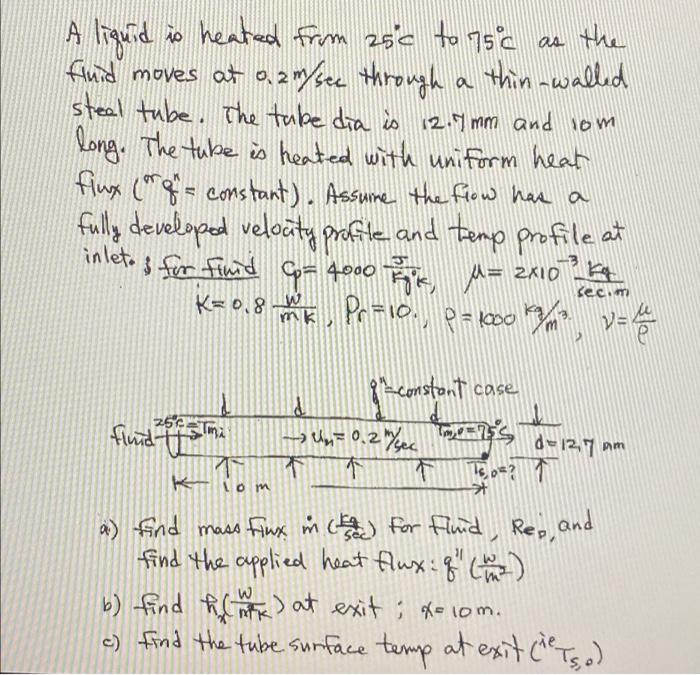 A liquid is heated from 25°C to 75°C as the
fluid moves at 0.2 m/sec through a thin-walled
steal tube. The tube dia is 12.7 mm and 10m
long. The tube is heated with uniform heat
flux (or q" = constant). Assume the flow has a
fully developed velocity profile and temp profile at
inlet. & for fluid Cp = 4000 J/kg°K, μ = 2x10⁻³ kg/sec.m
K = 0.8 W/mK, Pr = 10., ρ = 1000 kg/m³, ν = μ/ρ
q" = constant case
d d d d
fluid 25°C = Tmi → um = 0.2 m/sec Tm,o = 75°C d = 12,7 mm
10 m Ts,o = ?
a) find mass flux ṁ (kg/sec) for fluid, ReD, and
find the applied heat flux: q" (W/m²)
b) find hx (W/m²K) at exit ; x = 10m.
c) find the tube surface temp at exit (ie Ts,o)